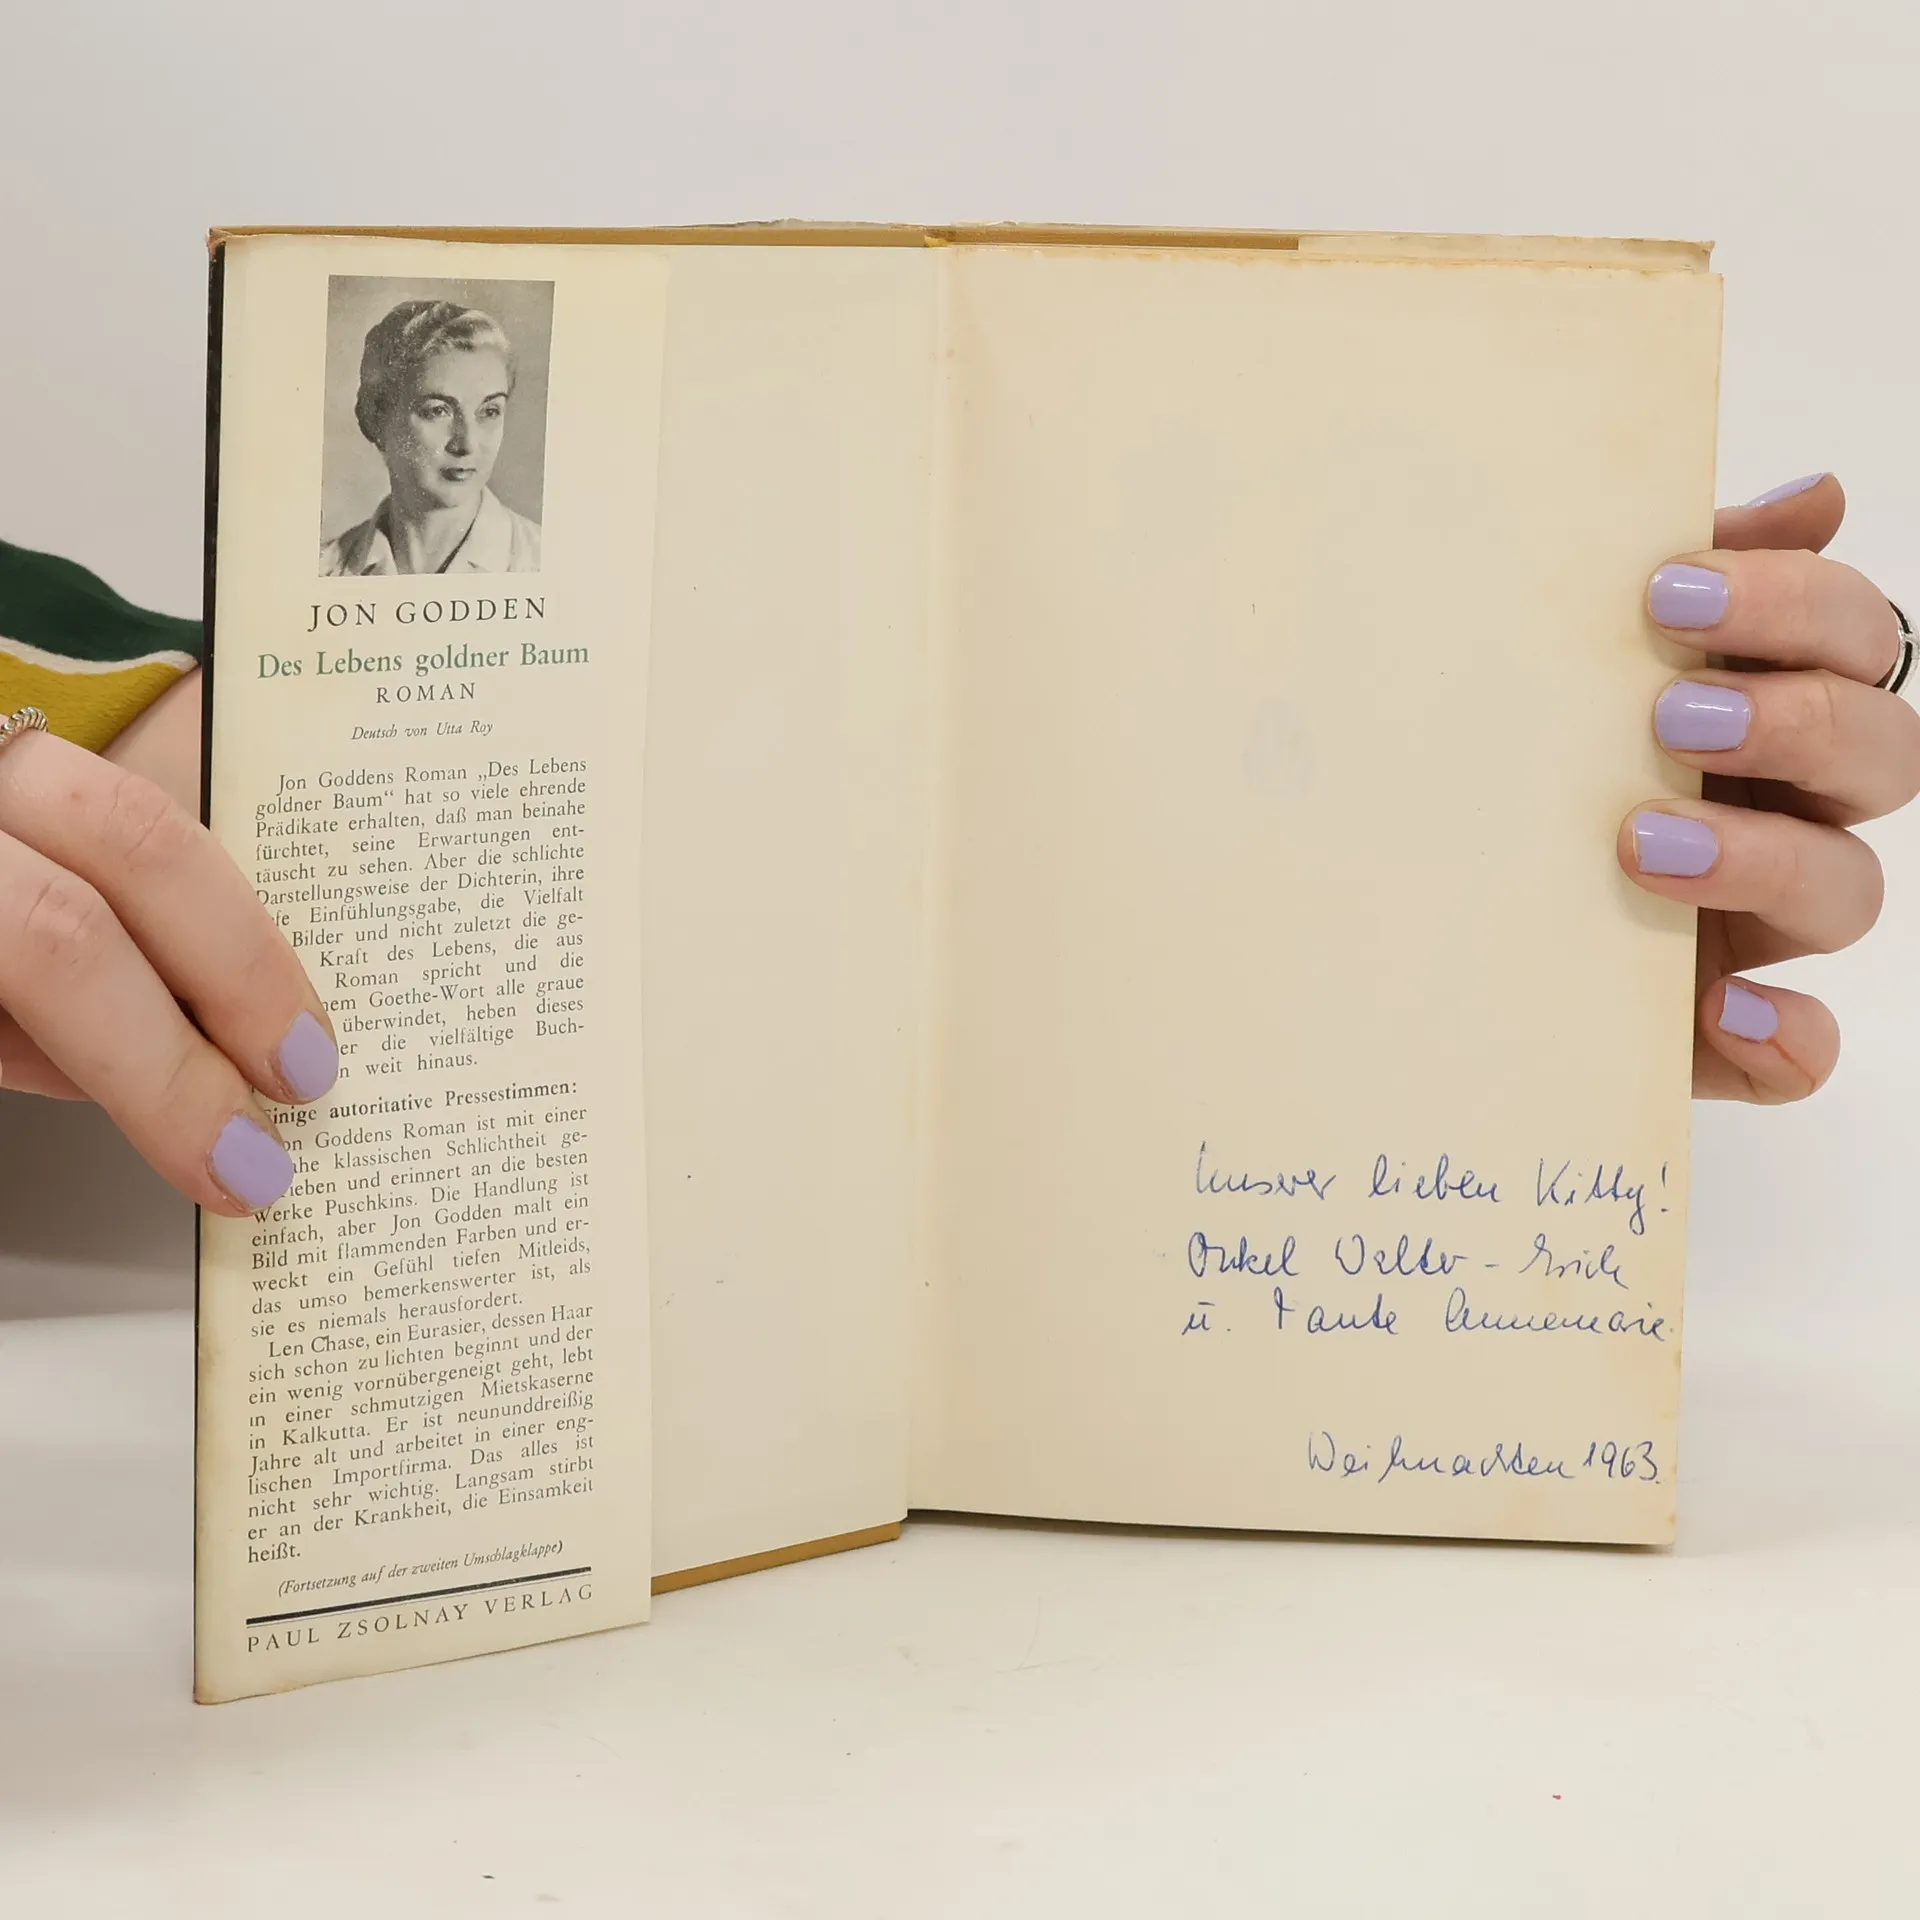 JON GODDEN
Des Lebens goldner Baum
ROMAN
Deutsch von Utta Roy
Jon Goddens Roman „Des Lebens
goldner Baum“ hat so viele ehrende
Prädikate erhalten, daß man beinahe
fürchtet, seine Erwartungen ent-
täuscht zu sehen. Aber die schlichte
Darstellungsweise der Dichterin, ihre
Einfühlungsgabe, die Vielfalt
Bilder und nicht zuletzt die ge-
Kraft des Lebens, die aus
Roman spricht und die
Goethe-Wort alle graue
überwindet, heben dieses
die vielfältige Buch-
weit hinaus.
Einige autoritative Pressestimmen:
Jon Goddens Roman ist mit einer
klassischen Schlichtheit ge-
schrieben und erinnert an die besten
Werke Puschkins. Die Handlung ist
einfach, aber Jon Godden malt ein
Bild mit flammenden Farben und er-
weckt ein Gefühl tiefen Mitleids,
das umso bemerkenswerter ist, als
sie es niemals herausfordert.
Len Chase, ein Eurasier, dessen Haar
sich schon zu lichten beginnt und der
ein wenig vornübergeneigt geht, lebt
in einer schmutzigen Mietskaserne
in Kalkutta. Er ist neununddreißig
Jahre alt und arbeitet in einer eng-
lischen Importfirma. Das alles ist
nicht sehr wichtig. Langsam stirbt
er an der Krankheit, die Einsamkeit
heißt.
(Fortsetzung auf der zweiten Umschlagklappe)
PAUL ZSOLNAY VERLAG
Unserer lieben Kitty!
Onkel Walter - Erich
u. Tante Annemarie.
Weihnachten 1963.